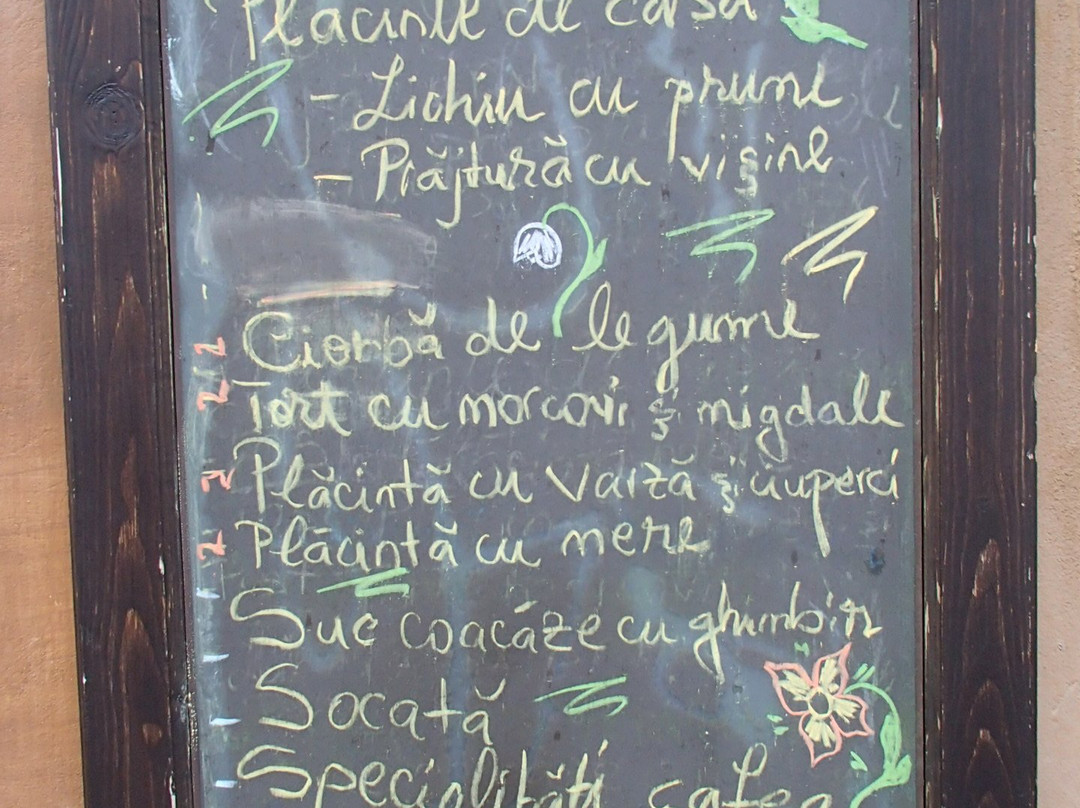 Plăcinte de casă
- Lichiu cu prune
- Prăjitură cu vișine
Ciorbă de legume
Tort cu morcovi și migdale
Plăcintă cu varză și ciuperci
Plăcintă cu mere
Suc coacăze cu ghimbir
Socată
Specialități cafea